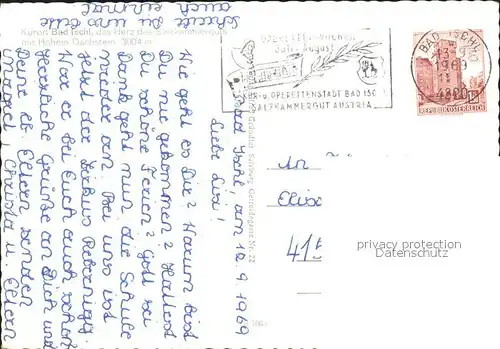 Kurort Bad Ischl, das Herz des Salzkammergutes
mit Hohem Dachstein, 3004 m
Bad Ischl, am 12. 9. 1969
Liebe Lisi!
Wie geht es Dir? Warum bist
Du nie gekommen? Hattest
Du schöne Ferien? Gott sei
Dank geht nun die Schule
wieder an. Bei uns ist
jetzt der Zirkus Rebernigg.
War er bei Euch auch schon?
Herzliche Grüße an Dich und
Deine lb. Eltern senden
Christa u. Eltern
Schreibe Du uns bitte
auch einmal
Operetten-Wochen
Juli-August
KUR- u. OPERETTENSTADT BAD ISCHL
SALZKAMMERGUT AUSTRIA
BAD ISCHL
1969
4820
REPUBLIK ÖSTERREICH
An
Elise
privacy protection
41
Salzburg
Nr. 22